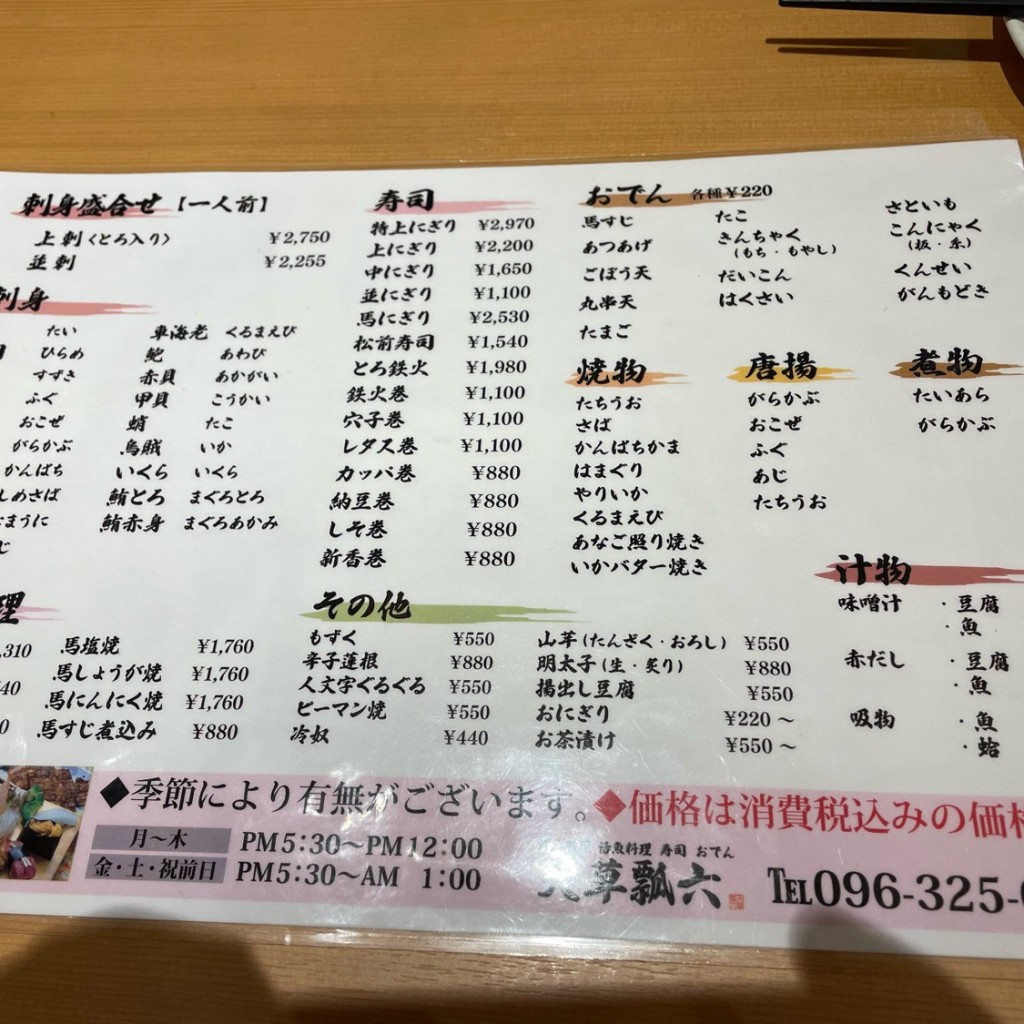 刺身盛合せ【一人前】
上刺〈とろ入り〉 ¥2,750
並刺 ¥2,255
刺身
たい
ひらめ
すずき
ふぐ
おこぜ
がらかぶ
かんぱち
しめさば
車海老 くるまえび
鮑 あわび
赤貝 あかがい
甲貝 こうかい
蛸 たこ
烏賊 いか
いくら いくら
鮪とろ まぐろとろ
鮪赤身 まぐろあかみ
寿司
特上にぎり ¥2,970
上にぎり ¥2,200
中にぎり ¥1,650
並にぎり ¥1,100
馬にぎり ¥2,530
松前寿司 ¥1,540
とろ鉄火 ¥1,980
鉄火巻 ¥1,100
穴子巻 ¥1,100
レタス巻 ¥1,100
カッパ巻 ¥880
納豆巻 ¥880
しそ巻 ¥880
新香巻 ¥880
おでん 各種¥220
馬すじ
あつあげ
ごぼう天
丸串天
たまご
たこ
きんちゃく
(もち・もやし)
だいこん
はくさい
さといも
こんにゃく
(板・糸)
くんせい
がんもどき
焼物
たちうお
さば
かんぱちかま
はまぐり
やりいか
くるまえび
あなご照り焼き
いかバター焼き
唐揚
がらかぶ
おこぜ
ふぐ
あじ
たちうお
煮物
たいあら
がらかぶ
汁物
味噌汁 ・豆腐
・魚
赤だし ・豆腐
・魚
吸物 ・魚
・蛤
理
馬塩焼 ¥1,760
馬しょうが焼 ¥1,760
馬にんにく焼 ¥1,760
馬すじ煮込み ¥880
その他
もずく ¥550
辛子蓮根 ¥880
人文字ぐるぐる ¥550
ピーマン焼 ¥550
冷奴 ¥440
山芋(たんざく・おろし) ¥550
明太子(生・炙り) ¥880
揚出し豆腐 ¥550
おにぎり ¥220〜
お茶漬け ¥550〜
◆季節により有無がございます。◆価格は消費税込みの価格
月〜木 PM5:30〜PM12:00
金・土・祝前日 PM5:30〜AM 1:00
活魚料理 寿司 おでん
草瓢六
TEL096-325-